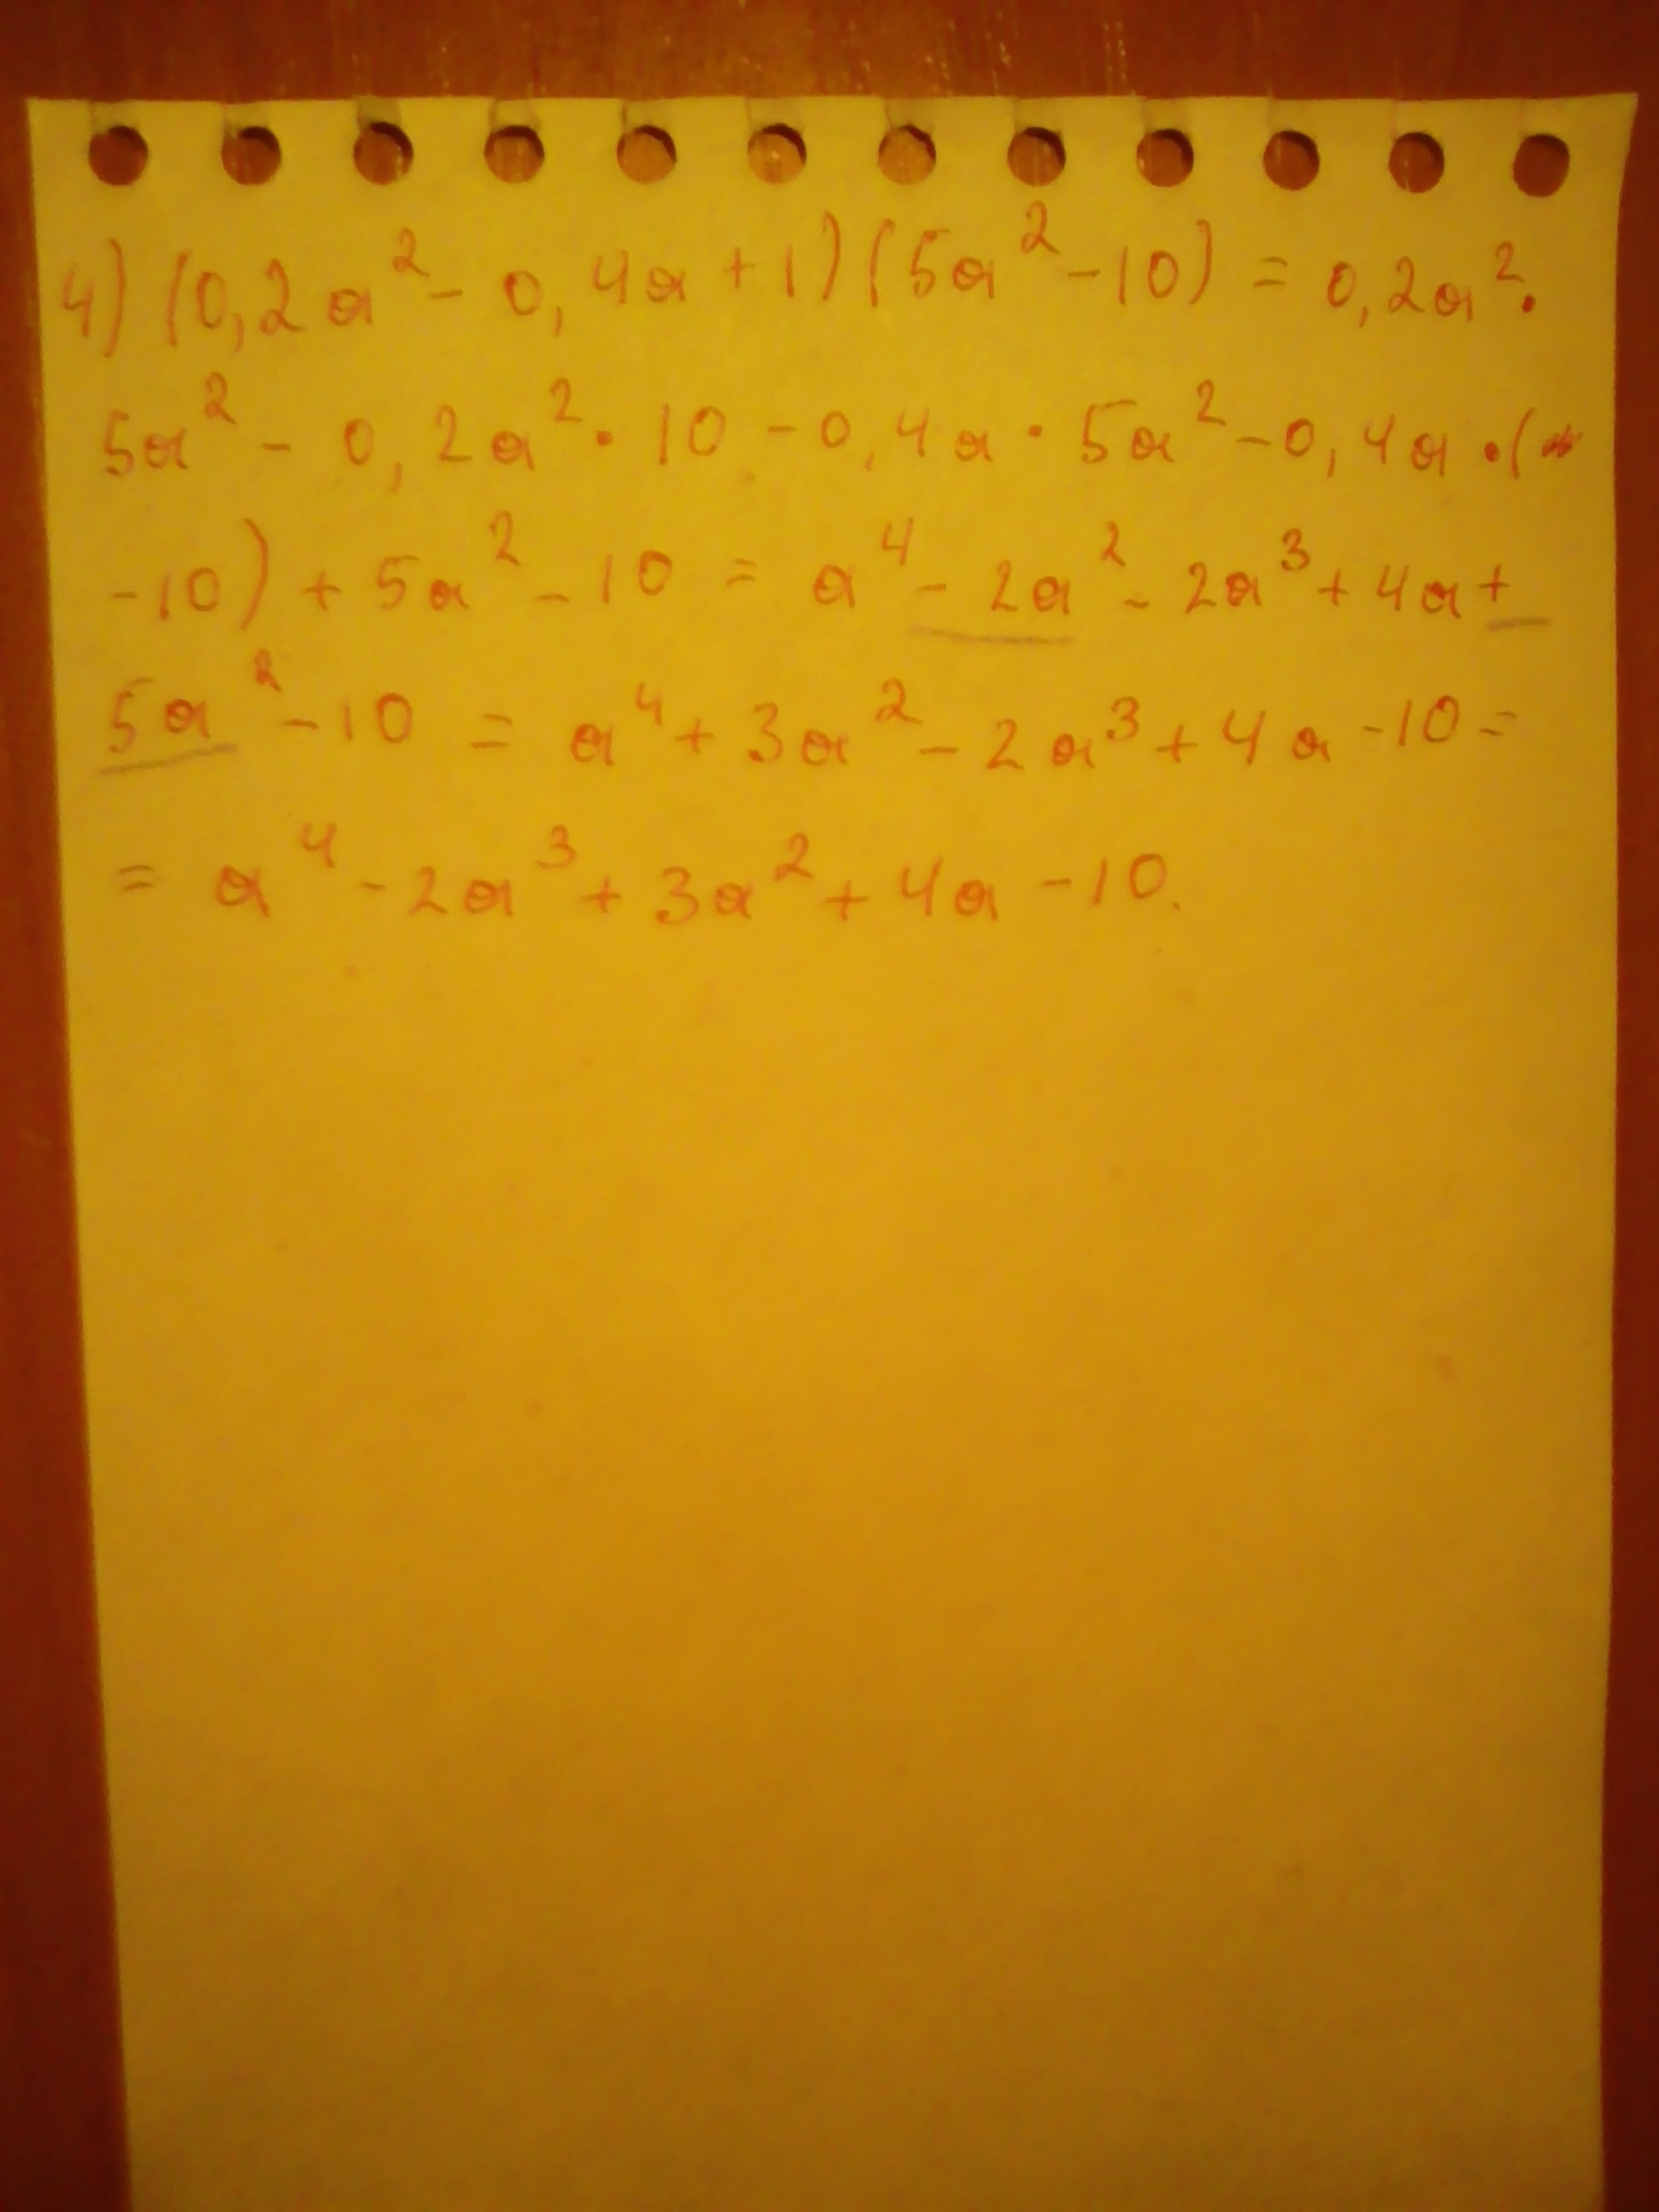 4) (0,2a² - 0,4a + 1)(5a² - 10) = 0,2a² ·
5a² - 0,2a² · 10 - 0,4a · 5a² - 0,4a · (
-10) + 5a² - 10 = a⁴ - 2a² - 2a³ + 4a +
5a² - 10 = a⁴ + 3a² - 2a³ + 4a - 10 =
= a⁴ - 2a³ + 3a² + 4a - 10.